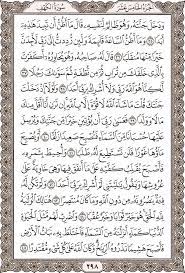 الجزء الخامس عشر
سورة الكهف
وَدَخَلَ جَنَّتَهُۥ وَهُوَ ظَالِمٌ لِّنَفْسِهِۦ قَالَ مَآ أَظُنُّ أَن تَبِيدَ هَٰذِهِۦٓ
أَبَدًا ٣٥ وَمَآ أَظُنُّ ٱلسَّاعَةَ قَآئِمَةً وَلَئِن رُّدِدتُّ إِلَىٰ رَبِّى لَأَجِدَنَّ
خَيْرًا مِّنْهَا مُنقَلَبًا ٣٦ قَالَ لَهُۥ صَاحِبُهُۥ وَهُوَ يُحَاوِرُهُۥٓ أَكَفَرْتَ
بِٱلَّذِى خَلَقَكَ مِن تُرَابٍ ثُمَّ مِن نُّطْفَةٍ ثُمَّ سَوَّىٰكَ رَجُلًا ٣٧
لَّٰكِنَّا۠ هُوَ ٱللَّهُ رَبِّى وَلَآ أُشْرِكُ بِرَبِّىٓ أَحَدًا ٣٨ وَلَوْلَآ إِذْ دَخَلْتَ
جَنَّتَكَ قُلْتَ مَا شَآءَ ٱللَّهُ لَا قُوَّةَ إِلَّا بِٱللَّهِ إِن تَرَنِ أَنَا۠ أَقَلَّ
مِنكَ مَالًا وَوَلَدًا ٣٩ فَعَسَىٰ رَبِّىٓ أَن يُؤْتِيَنِ خَيْرًا مِّن جَنَّتِكَ
وَيُرْسِلَ عَلَيْهَا حُسْبَانًا مِّنَ ٱلسَّمَآءِ فَتُصْبِحَ صَعِيدًا زَلَقًا ٤٠
أَوْ يُصْبِحَ مَآؤُهَا غَوْرًا فَلَن تَسْتَطِيعَ لَهُۥ طَلَبًا ٤١ وَأُحِيطَ بِثَمَرِهِۦ
فَأَصْبَحَ يُقَلِّبُ كَفَّيْهِ عَلَىٰ مَآ أَنفَقَ فِيهَا وَهِىَ خَاوِيَةٌ عَلَىٰ
عُرُوشِهَا وَيَقُولُ يَٰلَيْتَنِى لَمْ أُشْرِكْ بِرَبِّىٓ أَحَدًا ٤٢ وَلَمْ تَكُن لَّهُۥ
فِئَةٌ يَنصُرُونَهُۥ مِن دُونِ ٱللَّهِ وَمَا كَانَ مُنتَصِرًا ٤٣ هُنَالِكَ
ٱلْوَلَٰيَةُ لِلَّهِ ٱلْحَقِّ هُوَ خَيْرٌ ثَوَابًا وَخَيْرٌ عُقْبًا ٤٤ وَٱضْرِبْ لَهُم
مَّثَلَ ٱلْحَيَوٰةِ ٱلدُّنْيَا كَمَآءٍ أَنزَلْنَٰهُ مِنَ ٱلسَّمَآءِ فَٱخْتَلَطَ بِهِۦ نَبَاتُ ٱلْأَرْضِ
فَأَصْبَحَ هَشِيمًا تَذْرُوهُ ٱلرِّيَٰحُ وَكَانَ ٱللَّهُ عَلَىٰ كُلِّ شَىْءٍ مُّقْتَدِرًا ٤٥
٢٩٨